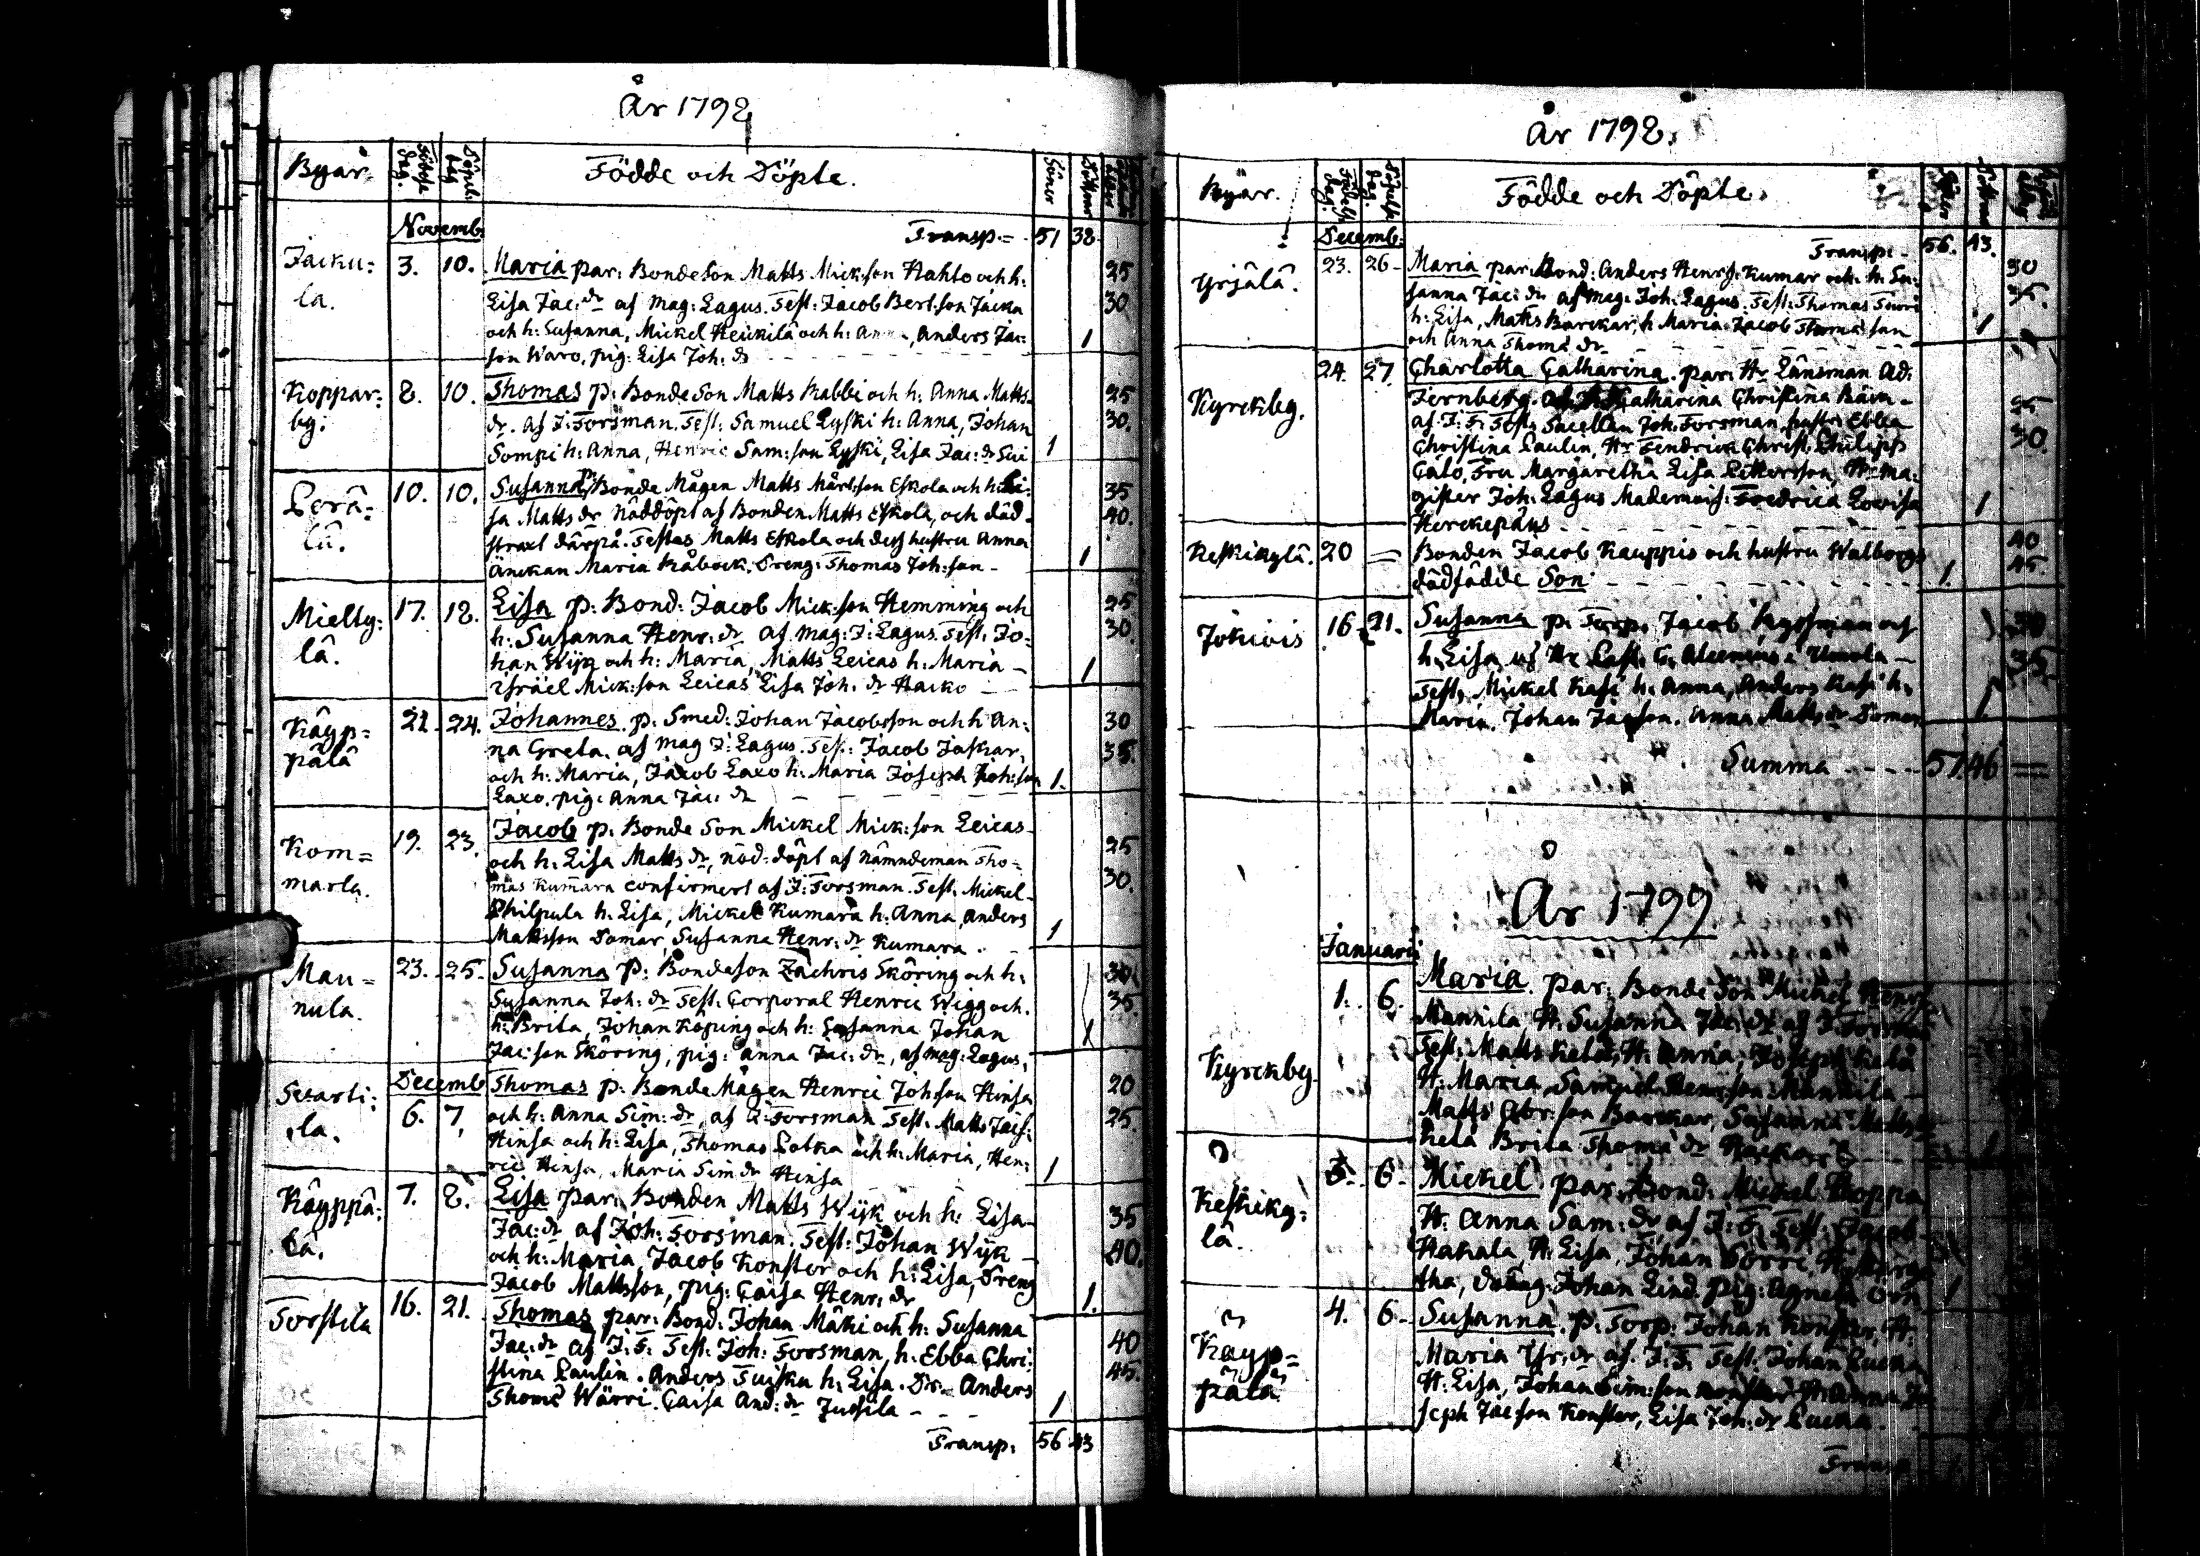 År 1798
Byar. Födelse dag. Döpels. dag Födde och Döpte. Söner Döttrar
Novemb. Transp. = 51 38
Jackula. 3. 10. Maria par: Bondeson Matts Mick:son Hahlo och h: 25
Lisa Jac: dr af Mag: Lagus. Test: Jacob Bert:son Jacka 30
och h: Susanna, Mickel Heickilä och h: Anna, Anders Jac: 1
son Waro, pig: Lisa Joh: dr
Koppar: by. 8. 10. Thomas p: Bondeson Matts Rabbi och h: Anna Matts 25
dr. af J: Forsman. Test: Samuel Lyski h: Anna, Johan 30.
Sompi h: Anna, Henric Sam:son Lyski, Lisa Jac: dr Sui 1
Perä: lä. 10. 10. Susanna p: Bonde Mågen Matts Mårt:son Eskola och h: Li: 35
sa Matts dr Nöddöpt af Bonden Matts Eskola, och död 40.
straxt därpå. Testes Matts Eskola och dess hustru Anna
Änckan Maria Råbock. Dreng: Thomas Joh:son - 1
Mielty: lä. 17. 18. Lisa p: Bond: Jacob Mick:son Hemming och 25
h: Susanna Henr: dr af Mag: J: Lagus. Test: Jo- 30.
han Wijk och h: Maria, Matts Leicas h: Maria - 1
Israël Mick:son Leicas Lisa Joh: dr Hacko -
Käyp= pälä 21. 24. Johannes p: Smed: Johan Jacobsson och h: An: 30
na Greta. af Mag J: Lagus. Test: Jacob Jaskar 35.
och h: Maria, Jacob Laxo h: Maria Joseph Joh:son 1.
Laxo. pig: Anna Jac: dr
Kom= marla. 19. 23. Jacob p: Bonde Son Mickel Mick:son Leicas 25
och h: Lisa Matts dr, nöd:döpt af Nämndeman Tho= 30.
mas Kumara confirmert af J: Forsman. Test. Mickel
Philpula h: Lisa, Mickel Kumara h: Anna, Anders 1
Mattsson Domar, Susanna Henr: dr Kumara.
Man= nula. 23. 25. Susanna p: Bondeson Zachris Sköring och h: 30
Susanna Joh: dr Test: Corporal Henric Wigg och 35.
h: Brita, Johan Köping och h: Susanna Johan 1
Jac:son Sköring, pig: Anna Jac: dr, af Mag: Lagus,
Decemb
Sccarti: la. 6. 7. Thomas p: BondeMågen Henric Joh:son Hinsa 20
och h: Anna Sim: dr, af J: Forsman Test. Matts Jacs: 25.
Hinsa och h: Lisa, Thomas Potka och h: Maria, Hen:
ric Hinsa, Maria Sim dr Hinsa 1
Käyppä: lä. 7. 8. Lisa par: Bonden Matts Wijk och h: Lisa 35
Jac: dr af Joh: Forsman. Test: Johan Wijk - 40.
och h: Maria, Jacob Konster och h: Lisa, Dreng
Jacob Mattsson, pig: Caisa Henr: dr 1.
Torstila 16. 21. Thomas par: Bond: Johan Mäki och h: Susanna
Jac: dr af J: F: Test. Joh: Forsman, h: Ebba Chri: 40
stina Paulin. Anders Tuisku h: Lisa. Dr. Anders 45.
Thome Wärri. Caisa And: dr Jussila - 1
Transp. 56 43
År 1798.
Byar. Födelse dag. Döpels dag. Födde och Döpte.
Decemb: Transp: - 56. 43.
Yrjälä. 23. 26 Maria par: Bond: Anders Henrs: Kumar och h: Su: 30
sanna Jac: dr af Mag: Joh: Lagus. Test: Thomas Tuori 35.
h: Lisa, Matts Barckar, h: Maria Jacob Thoma son 1
och Anna Thoma dr
Kyrckby. 24. 27. Charlotta Catharina. par: Hr Länsman Ad:
Ternberg. Catharina Christina 25
af J: F: Test. Sacellan Joh: Forsman, hustr: Ebba 30.
Christina Paulin, Hr Fendrick Christ. Philipp
Calo, Fru Margaretha Lisa Pettersson, Hr Ma:
gister Joh: Lagus Mademois: Fredrica Lovisa 1
Herckepäus -
Keskikylä. 20 = Bonden Jacob Kauppis och hustru Walborgs 40
dödfödde Son 1. 45.
Jokiois 16. 21. Susanna p: Torp. Jacob och 30
h: Lisa af Hr Past: G: Alcenius i Urnola - 35.
Test: Mickel Kasi h: Anna, Anders Kasi h: 1
Maria. Johan Jacson. Anna Matts dr Domar
Summa - - - 57 46 =
År 1799.
Januarii
Kyrckby. 1. 6. Maria. par: Bonde Son Mickel Henrs:
Mannila, H: Susanna Jac: dr af J: Forsman
Test: Matts Kelä, H: Anna, Joseph Kelä
H: Maria Samuel Henr:son Mannila -
Matts Abr:son Barckar, Susanna Matts dr
Kelä Brita Thoma dr
Keskiky: lä. 3. 6. Mickel par: Bond: Mickel Hoppa
H: Anna Sam: dr, af J: F: Test: Jacob
Hakala H: Lisa, Johan Sorri, H:
tha, dräng: Johan Lind. pig: Agneta Örn 1
Kayp= pälä 4. 6. Susanna p: Torp: Johan Konster, H:
Maria Yr: dr af. J: F: Test: Johan Lucka
H: Lisa, Johan Sim:son Konster H: Anna Jo
seph Jacson Konster, Lisa Joh: dr Lucka
Transp